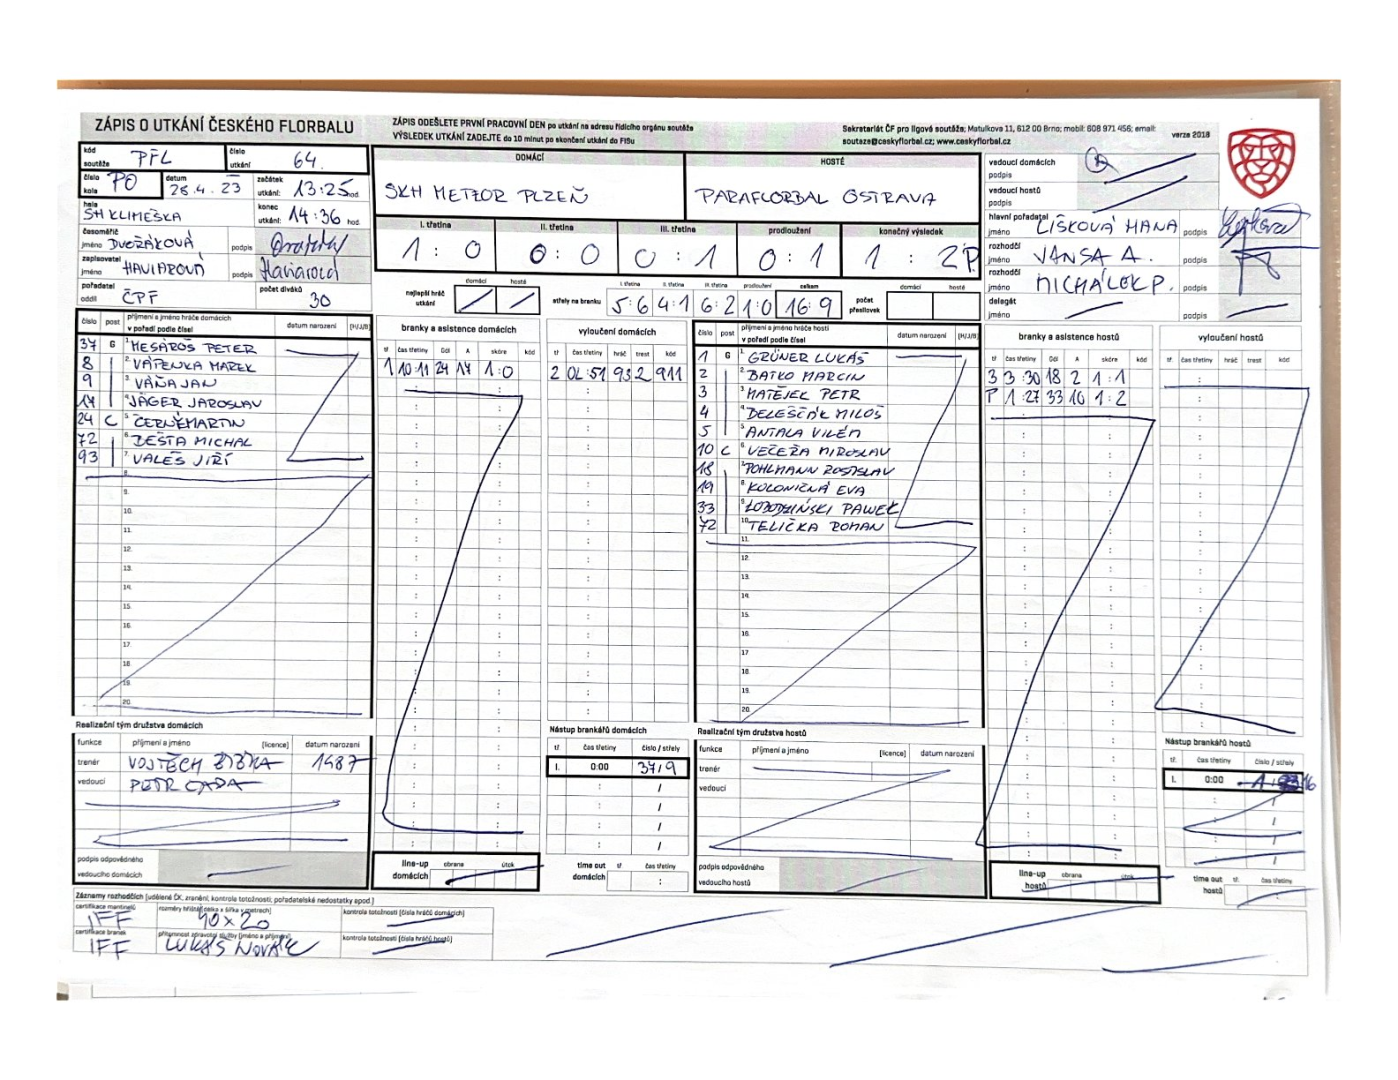 ZÁPIS O UTKÁNÍ ČESKÉHO FLORBALU
ZÁPIS ODEŠLETE PRVNÍ PRACOVNÍ DEN po utkání na adresu řídícího orgánu soutěže
VÝSLEDEK UTKÁNÍ ZADEJTE do 10 minut po skončení utkání do FISu
Sekretariát ČF pro ligové soutěže: Matulkova 11, 612 00 Brno; mobil: 608 971 456; email:
soutaze@ceskyflorbal.cz; www.ceskyflorbal.cz
verze 2018
kód soutěže PFL číslo utkání 64.
číslo kola PO datum 28.4. 23 začátek utkání: 13:25 hod
hala SH KLIMEŠKA konec utkání: 14:36 hod
časoměřič jméno DVOŘÁKOVÁ podpis
zapisovatel jméno HAVIAROVÁ podpis Haviarová
pořadatel oddíl ČPF počet diváků 30
DOMÁCÍ HOSTÉ
SKH METEOR PLZEŇ PARAFLORBAL OSTRAVA
I. třetina II. třetina III. třetina prodloužení konečný výsledek
1 : 0 0 : 0 0 : 1 0 : 1 1 : 2P.
nejlepší hráč utkání domácí hosté
střely na branku I. třetina II. třetina III. třetina prodloužení celkem
5:6 4:1 6:2 1:0 16:9
počet přesilovek domácí hosté
vedoucí domácích podpis
vedoucí hostů podpis
hlavní pořadatel jméno LÍŠKOVÁ HANA podpis
rozhodčí jméno VANSA A. podpis
rozhodčí jméno MICHÁLEK P.
delegát jméno podpis
číslo post příjmení a jméno hráče domácích v pořadí podle čísel datum narození [H/J/B]
37 G 1. MESÁROŠ PETER
8 2. VÁPENKA MAREK
9 3. VÁŇA JAN
14 4. JÁGER JAROSLAV
24 C 5. ČERNÝ MARTIN
72 6. BEŠTA MICHAL
93 7. VALEŠ JIŘÍ
8.
9.
10.
11.
12.
13.
14.
15.
16.
17.
18.
19.
20.
branky a asistence domácích
tř čas třetiny Gól A skóre kód
1 10:11 24 14 1:0
vyloučení domácích
tř čas třetiny hráč trest kód
2 02:51 93 2 911
číslo post příjmení a jméno hráče hostí v pořadí podle čísel datum narození [H/J/B]
1 G 1. GRÜNER LUKÁŠ
2 2. BATKO MARCIN
3 3. MATĚJEK PETR
4 4. DELEŠČÁK MILOŠ
5 5. ANTALA VILÉM
10 C 6. VEČEŘA MIROSLAV
18 7. POHLMANN ROSTISLAV
19 8. KOLONIČNÁ EVA
33 9. LOBODZIŃSKI PAWEŁ
72 10. TELIČKA ROMAN
11.
12.
13.
14.
15.
16.
17.
18.
19.
20.
branky a asistence hostů
tř čas třetiny Gól A skóre kód
3 3:30 18 2 1:1
P 1:27 33 10 1:2
vyloučení hostů
tř. čas třetiny hráč trest kód
Realizační tým družstva domácích
funkce příjmení a jméno [licence] datum narození
trenér VOJTĚCH ŽIŽKA 1987
vedoucí PETR CADA
podpis odpovědného vedoucího domácích
Nástup brankářů domácích
tř čas třetiny číslo / střely
I. 0:00 37/9
line-up domácích obrana útok
time out domácích tř čas třetiny
Realizační tým družstva hostů
funkce příjmení a jméno [licence] datum narození
trenér
vedoucí
podpis odpovědného vedoucího hostů
Nástup brankářů hostů
tř. čas třetiny číslo / střely
I. 0:00 1 16
line-up hostů obrana útok
time out hostů tř. čas třetiny
Záznamy rozhodčích [udělené ČK, zranění, kontrola totožnosti, pořadatelské nedostatky apod.]
certifikace mantinelů IFF rozměry hřiště [délka x šířka v metrech] 40x20 kontrola totožnosti [čísla hráčů domácích]
certifikace branek IFF přítomnost zdravotní služby [jméno a příjmení] LUKÁŠ NOVÁK kontrola totožnosti [čísla hráčů hostů]